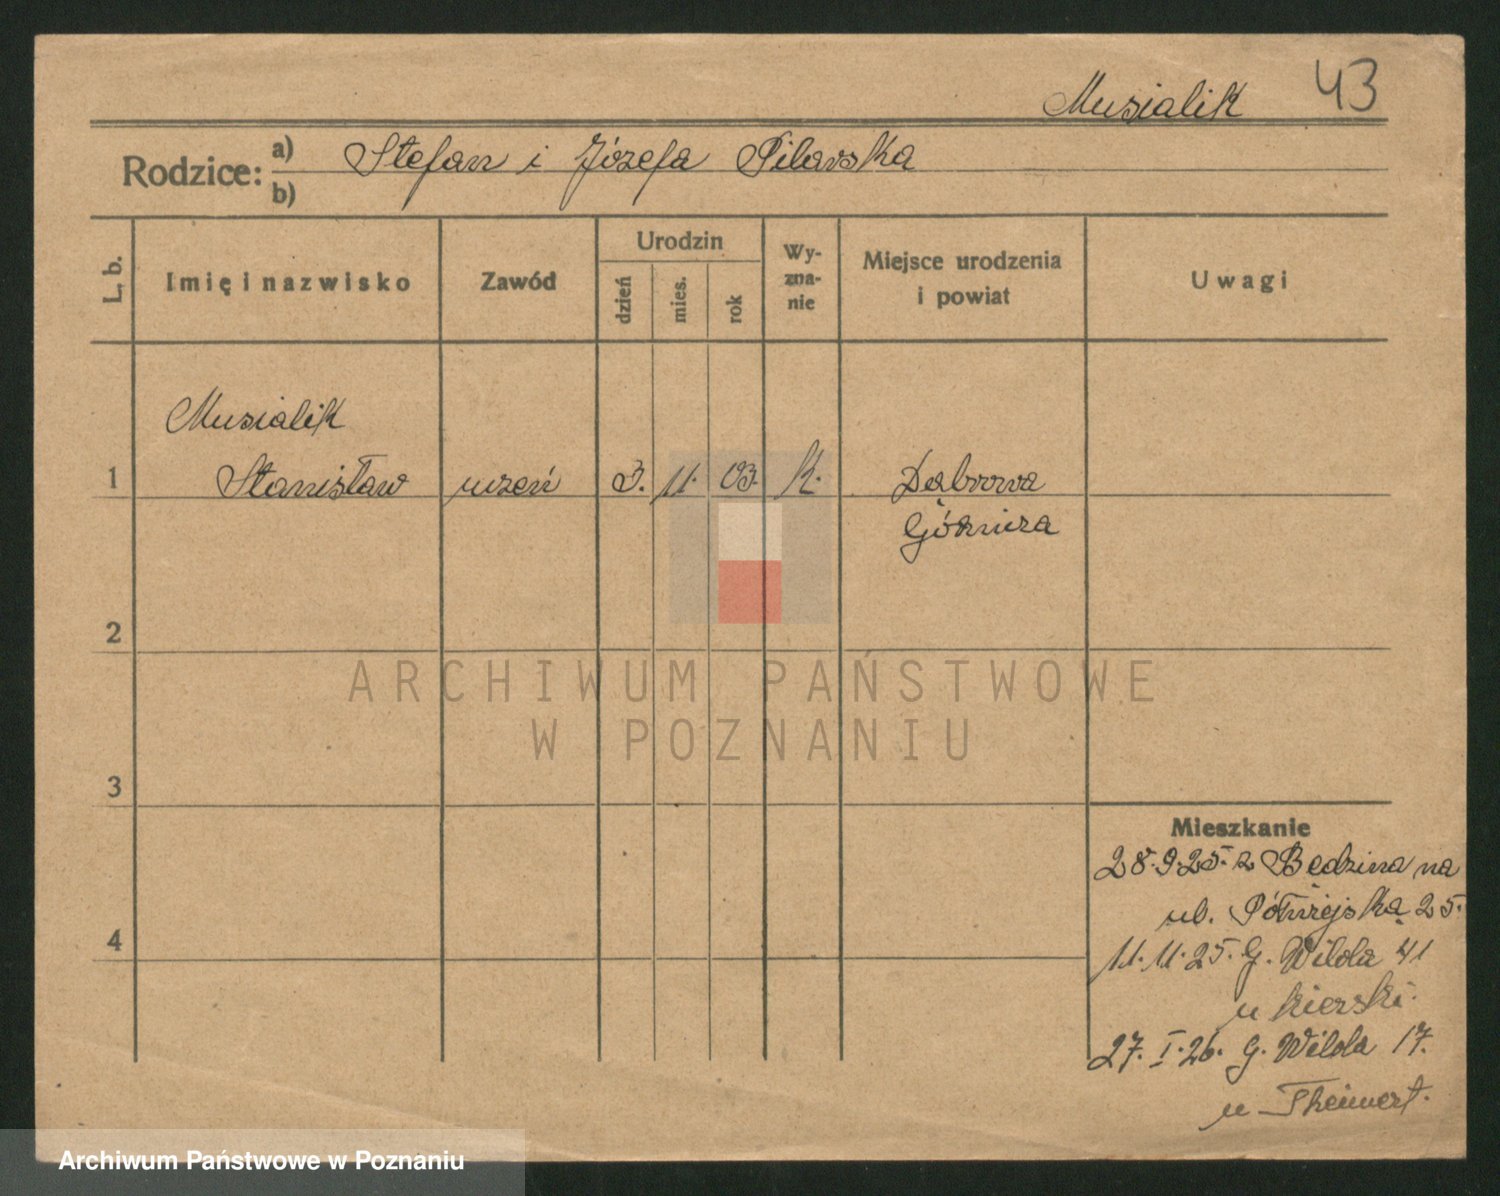 Musialik 43
Rodzice: a) Stefan i Józefa Pilarska
b)
L. b. Imię i nazwisko Zawód Urodzin dzień mies. rok Wyznanie Miejsce urodzenia i powiat Uwagi
Musialik
1 Stanisław uczeń 3. 11. 03. k. Dąbrowa
Górnicza
2
ARCHIWUM PAŃSTWOWE
W POZNANIU
3
Mieszkanie
28.9.25. z Będzina na
ul. Półwiejską 25.
4
11.11.25. G. Wilda 41
u Kierski.
27.I.26. G. Wilda 17.
u
Archiwum Państwowe w Poznaniu